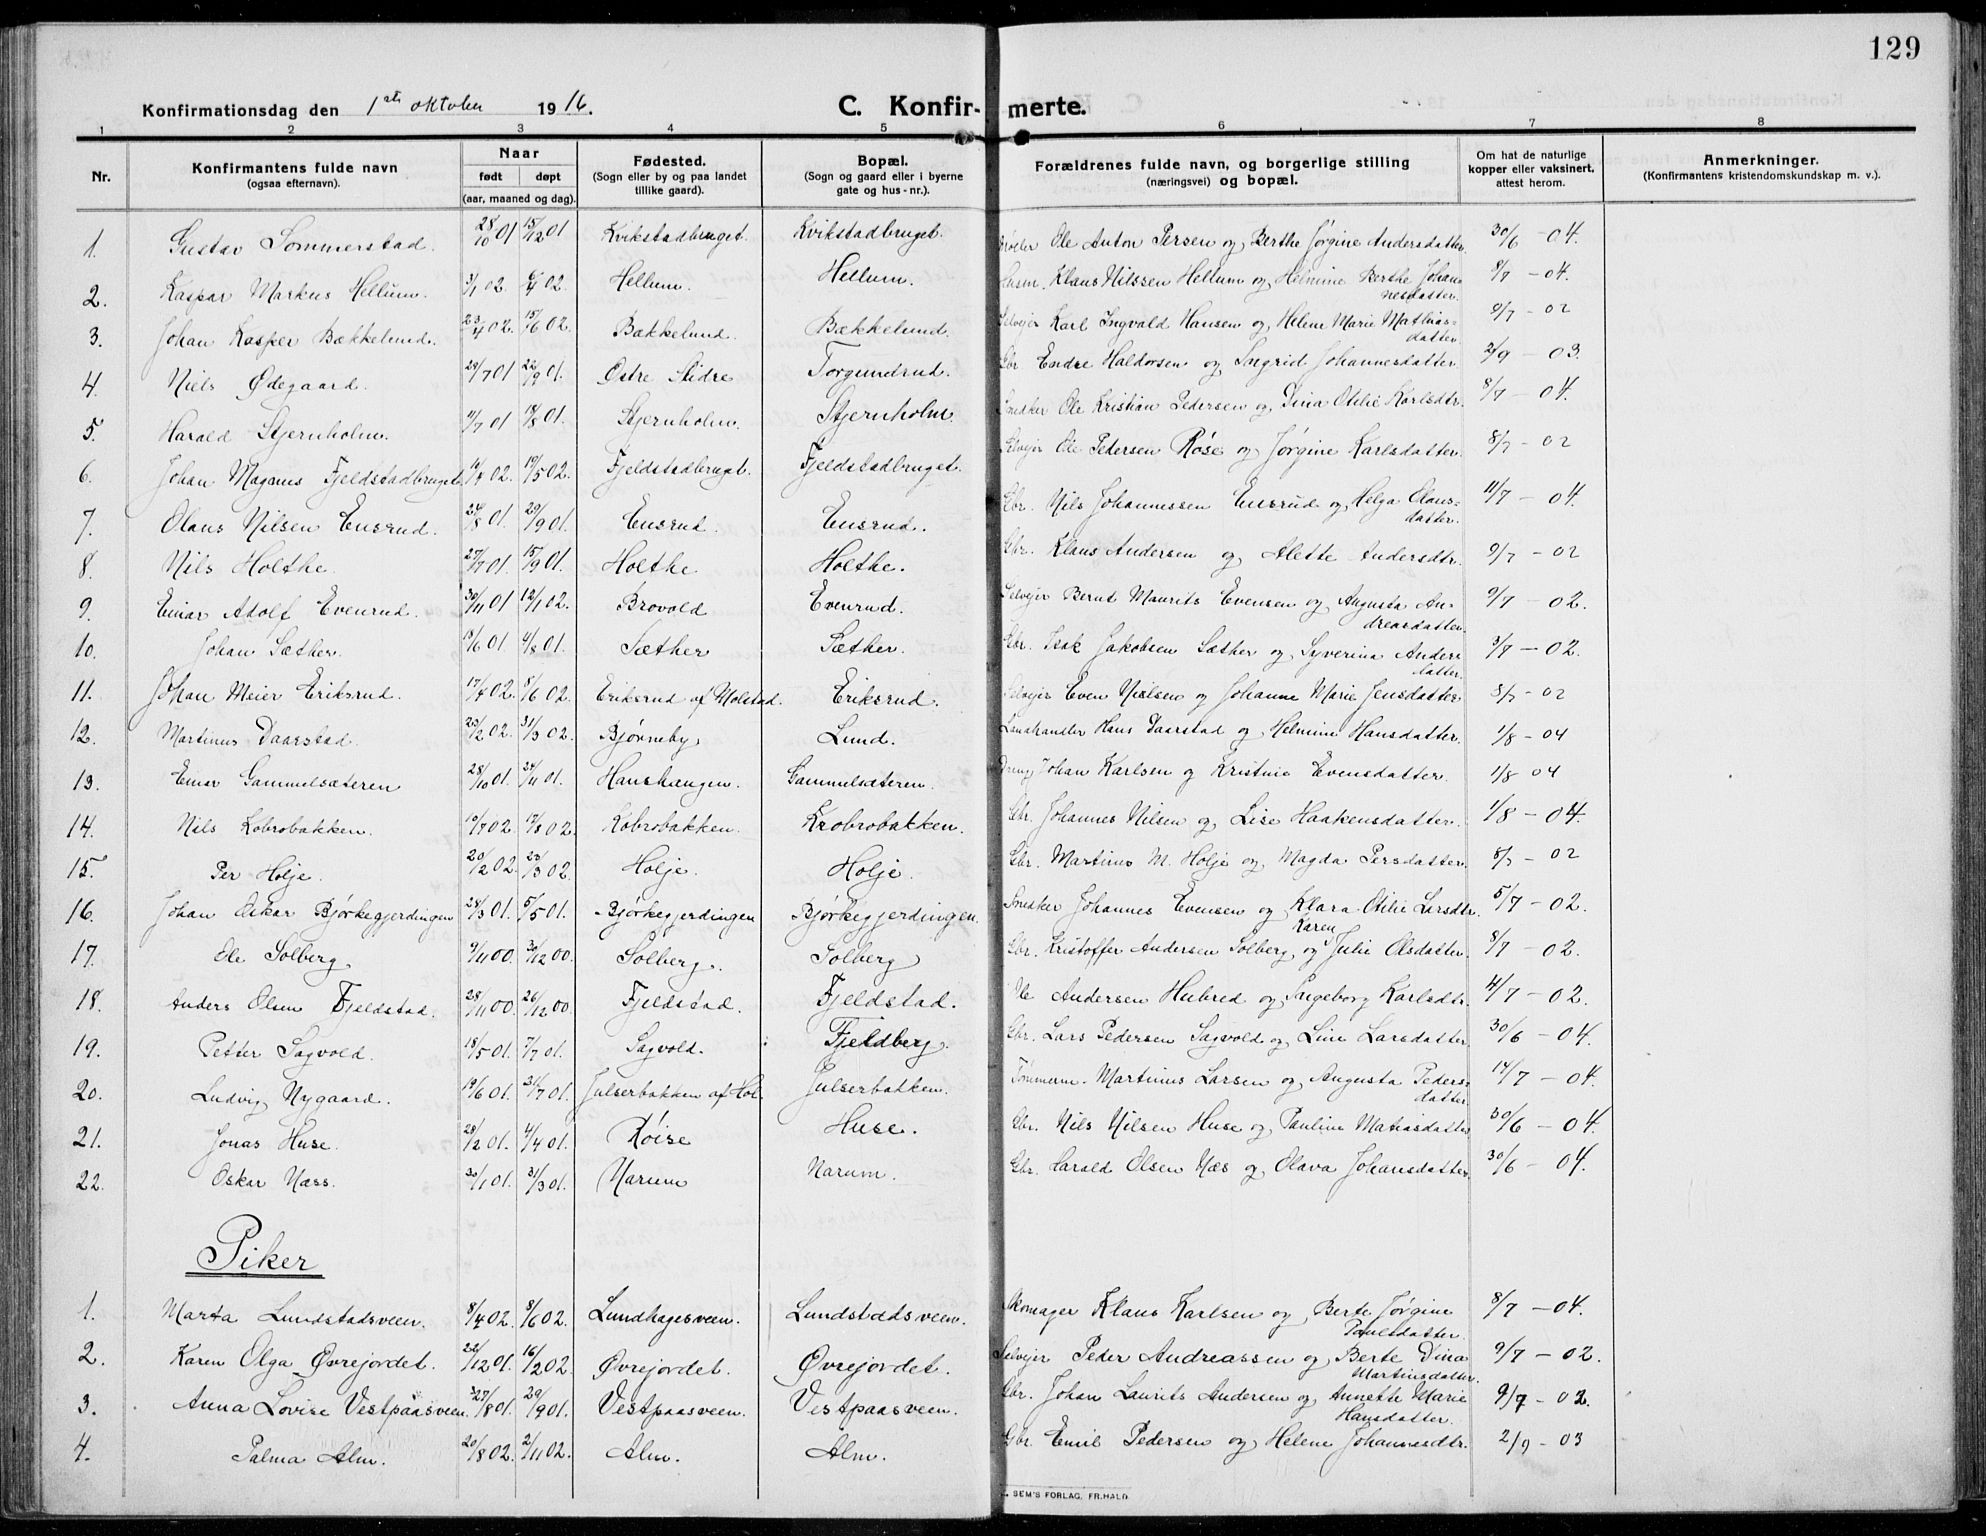 129
Konfirmationsdag den 1ste oktober 1916. C. Konfir- merte.
1 2 3 4 5 6 7 8
Nr. Konfirmantens fulde navn (ogsaa efternavn). Naar født døpt (aar, maaned og dag). Fødested. (Sogn eller by og paa landet tillike gaard). Bopæl. (Sogn og gaard eller i byerne gate og hus-nr.). Forældrenes fulde navn, og borgerlige stilling (næringsvei) og bopæl. Om hat de naturlige kopper eller vaksinert, attest herom. Anmerkninger. (Konfirmantens kristendomskundskap m. v.).
1. Gustav Sommerstad. 28/10 01 15/12 01 Kvikstadbruget. Kvikstadbruget. Ole Anton Persen og Berthe Jørgine Andersdatter. 30/6 - 04.
2. Kaspar Markus Hellum. 3/1 02. 6/4 02. Hellum. Hellum. Husm. Klaus Nilssen Hellum og Helmine Berthe Johannesdatter. 8/7 - 04.
3. Johan Kasper Bækkelund. 23/4 02. 15/6 02. Bækkelund. Bækkelund. Selvejer Karl Ingvald Hansen og Helene Marie Mathiasdatter. 9/7 - 02
4. Niels Ødegaard. 24/7 01 22/9 01. Østre Slidre Torgundrud. Gbr Endre Haldorsen og Ingrid Johannesdatter. 2/9 - 03.
5. Harald Stjernholm. 11/7 01 18/8 01. Stjernholm. Stjernholm. Snedker Ole Kristian Pedersen og Dina Otilie Karlsdtr. 8/7 - 04.
6. Johan Magnus Fjeldstadbruget 16/4 02. 19/5 02. Fjeldstadbruget. Fjeldstadbruget. Selvejer Ole Pedersen Røse og Jørgine Karlsdatter. 8/7 - 02
7. Olaus Nilsen Ensrud. 24/8 01. 29/9 01. Ensrud. Ensrud. Gbr. Nils Johannessen Ensrud og Helga Olausdatter. 11/7 - 04.
8. Nils Holthe. 27/7 01. 15/9 01. Holthe Holthe. Gbr. Klaus Andersen og Alette Andersdtr. 9/7 - 02
9. Einar Adolf Evenrud. 30/11 01 12/1 02. Brovold Evenrud. Selvejer Bernt Maurits Evensen og Augusta Andreasdatter. 9/7 - 02.
10. Johan Sæther. 13/6 01. 4/8 01. Sæther Sæther. Gbr. Isak Jakobsen Sæther og Syverina Andersdatter. 3/7 - 02.
11. Johan Meier Eriksrud. 17/4 02. 8/6 02. Eriksrud af Molstad. Eriksrud. Selvejer Even Nielsen og Johanne Marie Jensdatter 8/7 - 02
12. Martinus Daarstad. 23/2 02. 31/3 02. Bjørneby Lund. Landhandler Hans Daarstad og Helmine Hansdatter. 1/8 - 04
13. Einar Gammelsæteren 28/10 01. 24/11 01. Hanshaugen. Gammelsæteren. Dreng Johan Karlsen og Kristine Evensdatter. 1/8 04
14. Nils Kobrobakken. 10/7 02. 17/8 02. Kobrobakken. Krobrobakken. Gbr. Johannes Nilsen og Lise Haakensdatter. 1/8 - 04.
15. Per Holje. 20/2 02. 23/3 02. Holje. Holje. Gbr. Martinus M. Holje og Magda Persdatter. 8/7 - 02
16. Johan Oskar Bjørkegjerdingen 28/3 01. 5/5 01. Bjørkegjerdingen Bjørkegjerdingen. Snedker Johannes Evensen og Klara Otilie Larsdtr. 5/7 - 02.
17. Ole Solberg. 9/11 00. 30/12 00. Solberg. Solberg Gbr. Kristoffer Andersen Solberg og Karen Julie Olsdatter. 8/7 - 02.
18. Anders Olsen Fjeldstad. 28/11 00. 26/12 00. Fjeldstad. Fjeldstad. Ole Andersen Hubred og Ingeborg Karlsdtr. 4/7 - 02.
19. Petter Sagvold. 18/5 01. 7/7 01. Sagvold. Fjeldberg. Gbr. Lars Pedersen Sagvold og Line Larsdatter 30/6 - 04.
20. Ludvig Nygaard. 19/6 01. 21/7 01. Julserbakken af Hol. Julserbakken. Tømmerm. Martinus Larsen og Augusta Pedersdatter 14/7 - 04.
21. Jonas Huse. 28/2 01. 4/4 01. Røise Huse. Gbr. Nils Nilsen Huse og Pauline Matiasdatter 30/6 - 04.
22. Oskar Næss. 30/1 01. 31/3 01. Narum Narum. Gbr. Harald Olsen Næs og Olava Johansdatter. 30/6 - 04.
Piker
1. Marta Lundstadsveen. 8/4 02. 8/6 02. Lundhagesveen. Lundstadsveen. Skomager Klaus Karlsen og Berte Jørgine Paulsdatter. 8/7 - 04.
2. Karen Olga Øvrejordet. 22/12 01. 16/2 02. Øvrejordet. Øvrejordet. Selvejer Peder Andreassen og Berte Dina Martinsdatter. 9/7 - 02.
3. Anna Lovise Vestpaasveen. 27/8 01. 29/9 01. Vestpaasveen. Vestpaasveen. Gbr. Johan Laurits Andersen og Annette Marie Hansdatter. 9/7 - 02.
4. Palma Alm. 20/8 02. 2/11 02. Alm. Alm. Gbr. Emil Pedersen og Helene Johannesdtr. 2/9 - 03
SEM'S FORLAG, FR.HALD.